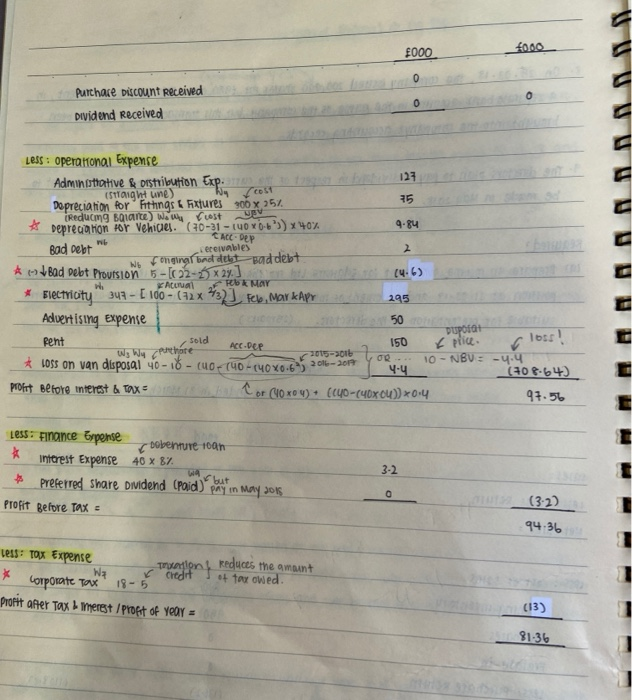 £000 £000
0
Purchase Discount Received
0 0
Dividend Received
Less: Operational Expense
Administrative & Distribution Exp. 127
(straight line) W4 cost
Depreciation for Fittings & Fixtures 300 x 25% 75
(Reducing Balance) W3 W4 cost NBV
☆ Depreciation for Vehicles. (70-31-(40x0.6²)) x 40% 9.84
Acc. Dep
Bad Debt W6 receivables 2
original bad debt Bad debt
☆ (-)↓ Bad Debt Provision W6 5 - [(22-2) x 2%] (4.6)
Accrual Feb & Mar
☆ Electricity W1 347 - [100 - (72 x 2/3)] Feb, Mar & Apr 295
Advertising Expense 50
Rent 150
sold Disposal
W3 W4 purchase Acc. Dep 2015-2016 price. loss!
☆ Loss on van disposal 40-10-(40-(40-(40x0.6²) 2016-2017 OR ... 10 - NBV = -4.4
4.4 (708.64)
or (40x0.4) + ((40-(40x0.4)) x 0.4
Profit Before Interest & Tax = 97.56
Less: Finance Expense
Debenture loan
☆ Interest Expense 40 x 8% 3.2
W9 but
☆ Preferred Share Dividend (Paid) pay in May 2018 0
(3.2)
Profit Before Tax =
94.36
Less: Tax Expense
W7 taxation credit } Reduces the amount of tax owed.
☆ Corporate Tax 18-5
(13)
Profit after Tax & Interest / Profit of Year =
81.36